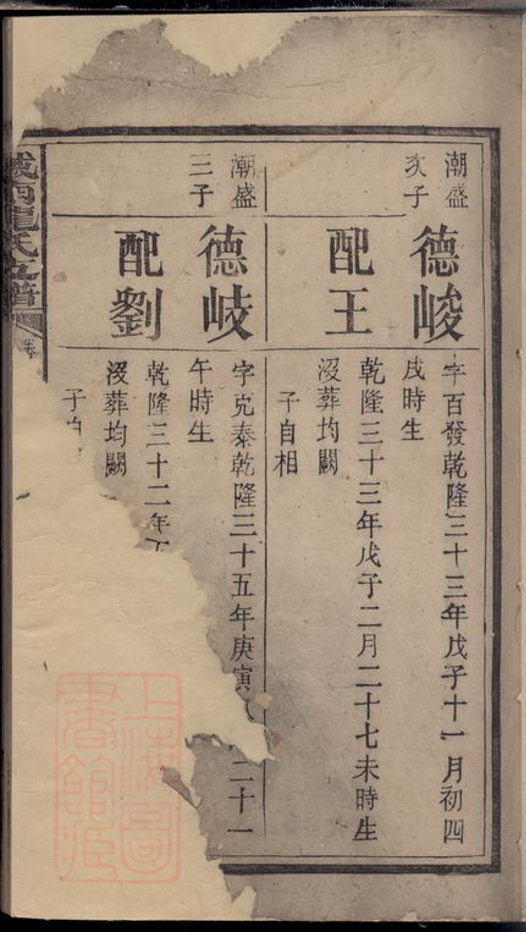 潮盛
次子
德峻
配王
字百發乾隆三十三年戊子十一月初四
戌時生
乾隆三十三年戊子二月二十七未時生
沒葬均闕
子自相
潮盛
三子
德岐
配劉
字克泰乾隆三十五年庚寅 二十一
午時生
乾隆三十二年丁
沒葬均闕
子自
氏五譜
上海圖
書館藏